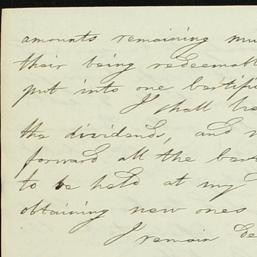 amounts remaining
their being redeemable
put into one
I shall
the dividends, and
forward all the
to be held at my
obtaining new ones
I remain